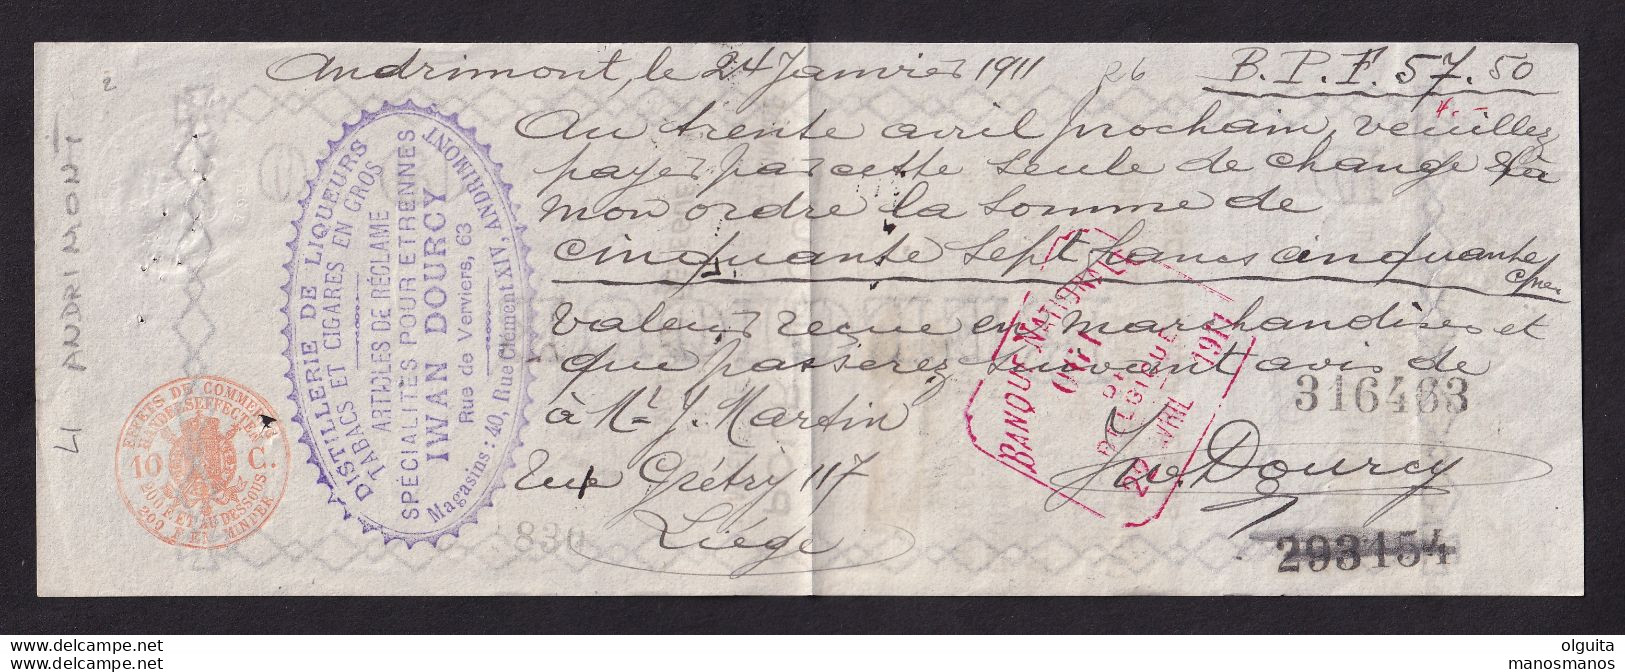 Andrimont, le 24 Janvier 1911 26 B. P. F. 57.50
4.-
Au trente avril prochain, veuillez
payer par cette seule de change à
mon ordre la somme de
cinquante sept francs cinquante
Valeur reçue en marchandises et
que passerez suivant avis de
à Mr J. Martin
Rue Grétry 117
Liège
Iw. Dourcy
DISTILLERIE DE LIQUEURS
TABACS ET CIGARES EN GROS
ARTICLES DE RÉCLAME
SPÉCIALITÉS POUR ETRENNES
IWAN DOURCY
Rue de Verviers, 63
Magasins: 40, Rue Clément XIV, ANDRIMONT
LI ANDRIMONT
EFFETS DE COMMERCE
HANDELSEFFECTEN
10 C.
200 F. ET AU DESSOUS
200 F. EN MINDER
BANQUE NATIONALE
DE
BELGIQUE
29 AVRIL 1911
316483
293154
830
www.delcampe.net
olguita
manosmanos